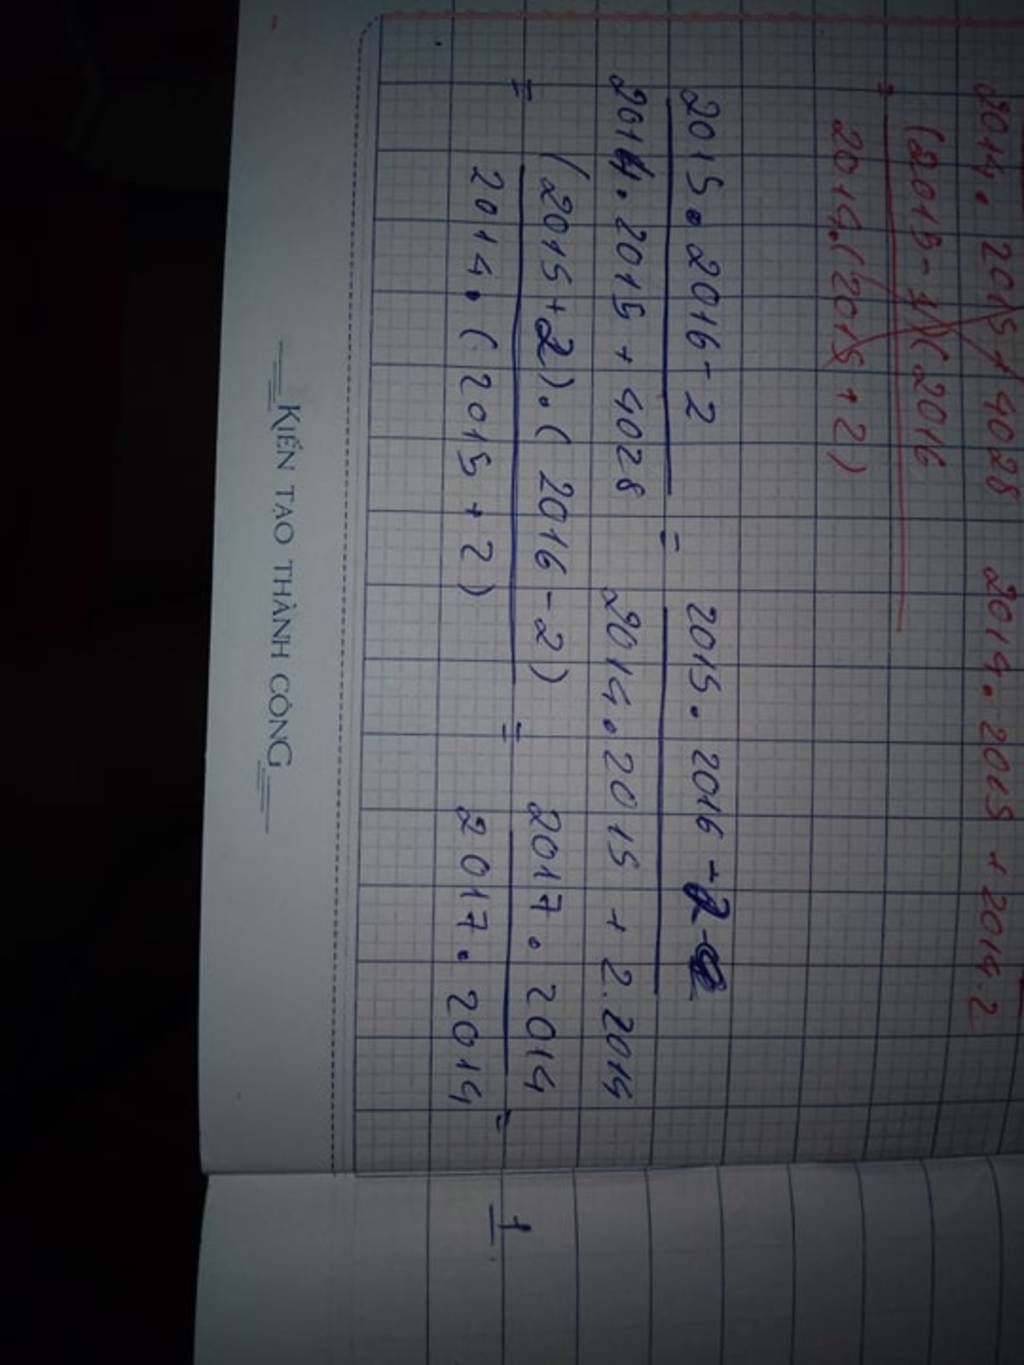 2014. 2015 + 4028 2014. 2015 + 2014.2
= (2015-1)(2016
2014.(2015 + 2)
2015. 2016 - 2 = 2015. 2016 - 2
2014. 2015 + 4028 2014. 2015 + 2. 2014
= (2015+2).( 2016 - 2) = 2017. 2014 = 1
2014. ( 2015 + 2) 2017. 2014
KIẾN TẠO THÀNH CÔNG